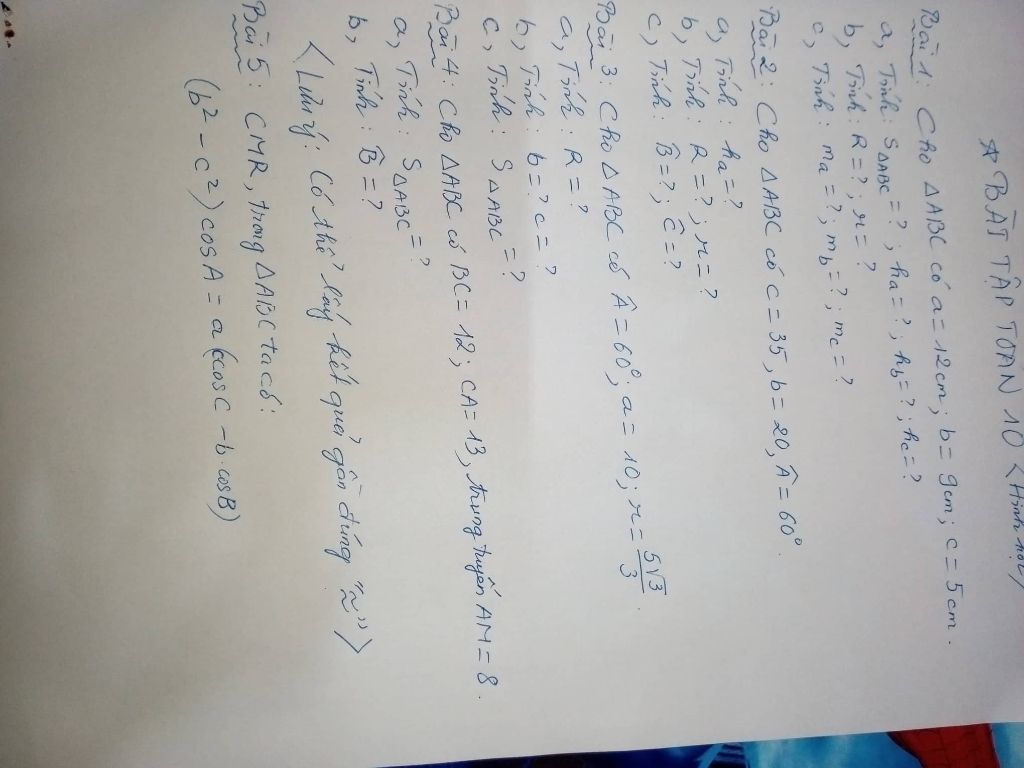 * BÀI TẬP TOÁN 10 < Hình học >
Bài 1: Cho ΔABC có a = 12cm; b = 9cm; c = 5cm.
a, Tính: SΔABC = ?; ha = ?; hb = ?; hc = ?
b, Tính: R = ?; r = ?
c, Tính: ma = ?; mb = ?; mc = ?
Bài 2: Cho ΔABC có c = 35, b = 20, Â = 60°.
a, Tính: ha = ?
b, Tính: R = ?; r = ?
c, Tính: B̂ = ?; Ĉ = ?
Bài 3: Cho ΔABC có Â = 60°; a = 10; r = 5√3/3.
a, Tính: R = ?
b, Tính: b = ? c = ?
c, Tính: SΔABC = ?
Bài 4: Cho ΔABC có BC = 12; CA = 13, trung tuyến AM = 8.
a, Tính: SΔABC = ?
b, Tính: B̂ = ?
< Lưu ý: Có thể lấy kết quả gần đúng "≈" >
Bài 5: CMR, trong ΔABC ta có:
(b² - c²) cosA = a(cosC - b.cosB)